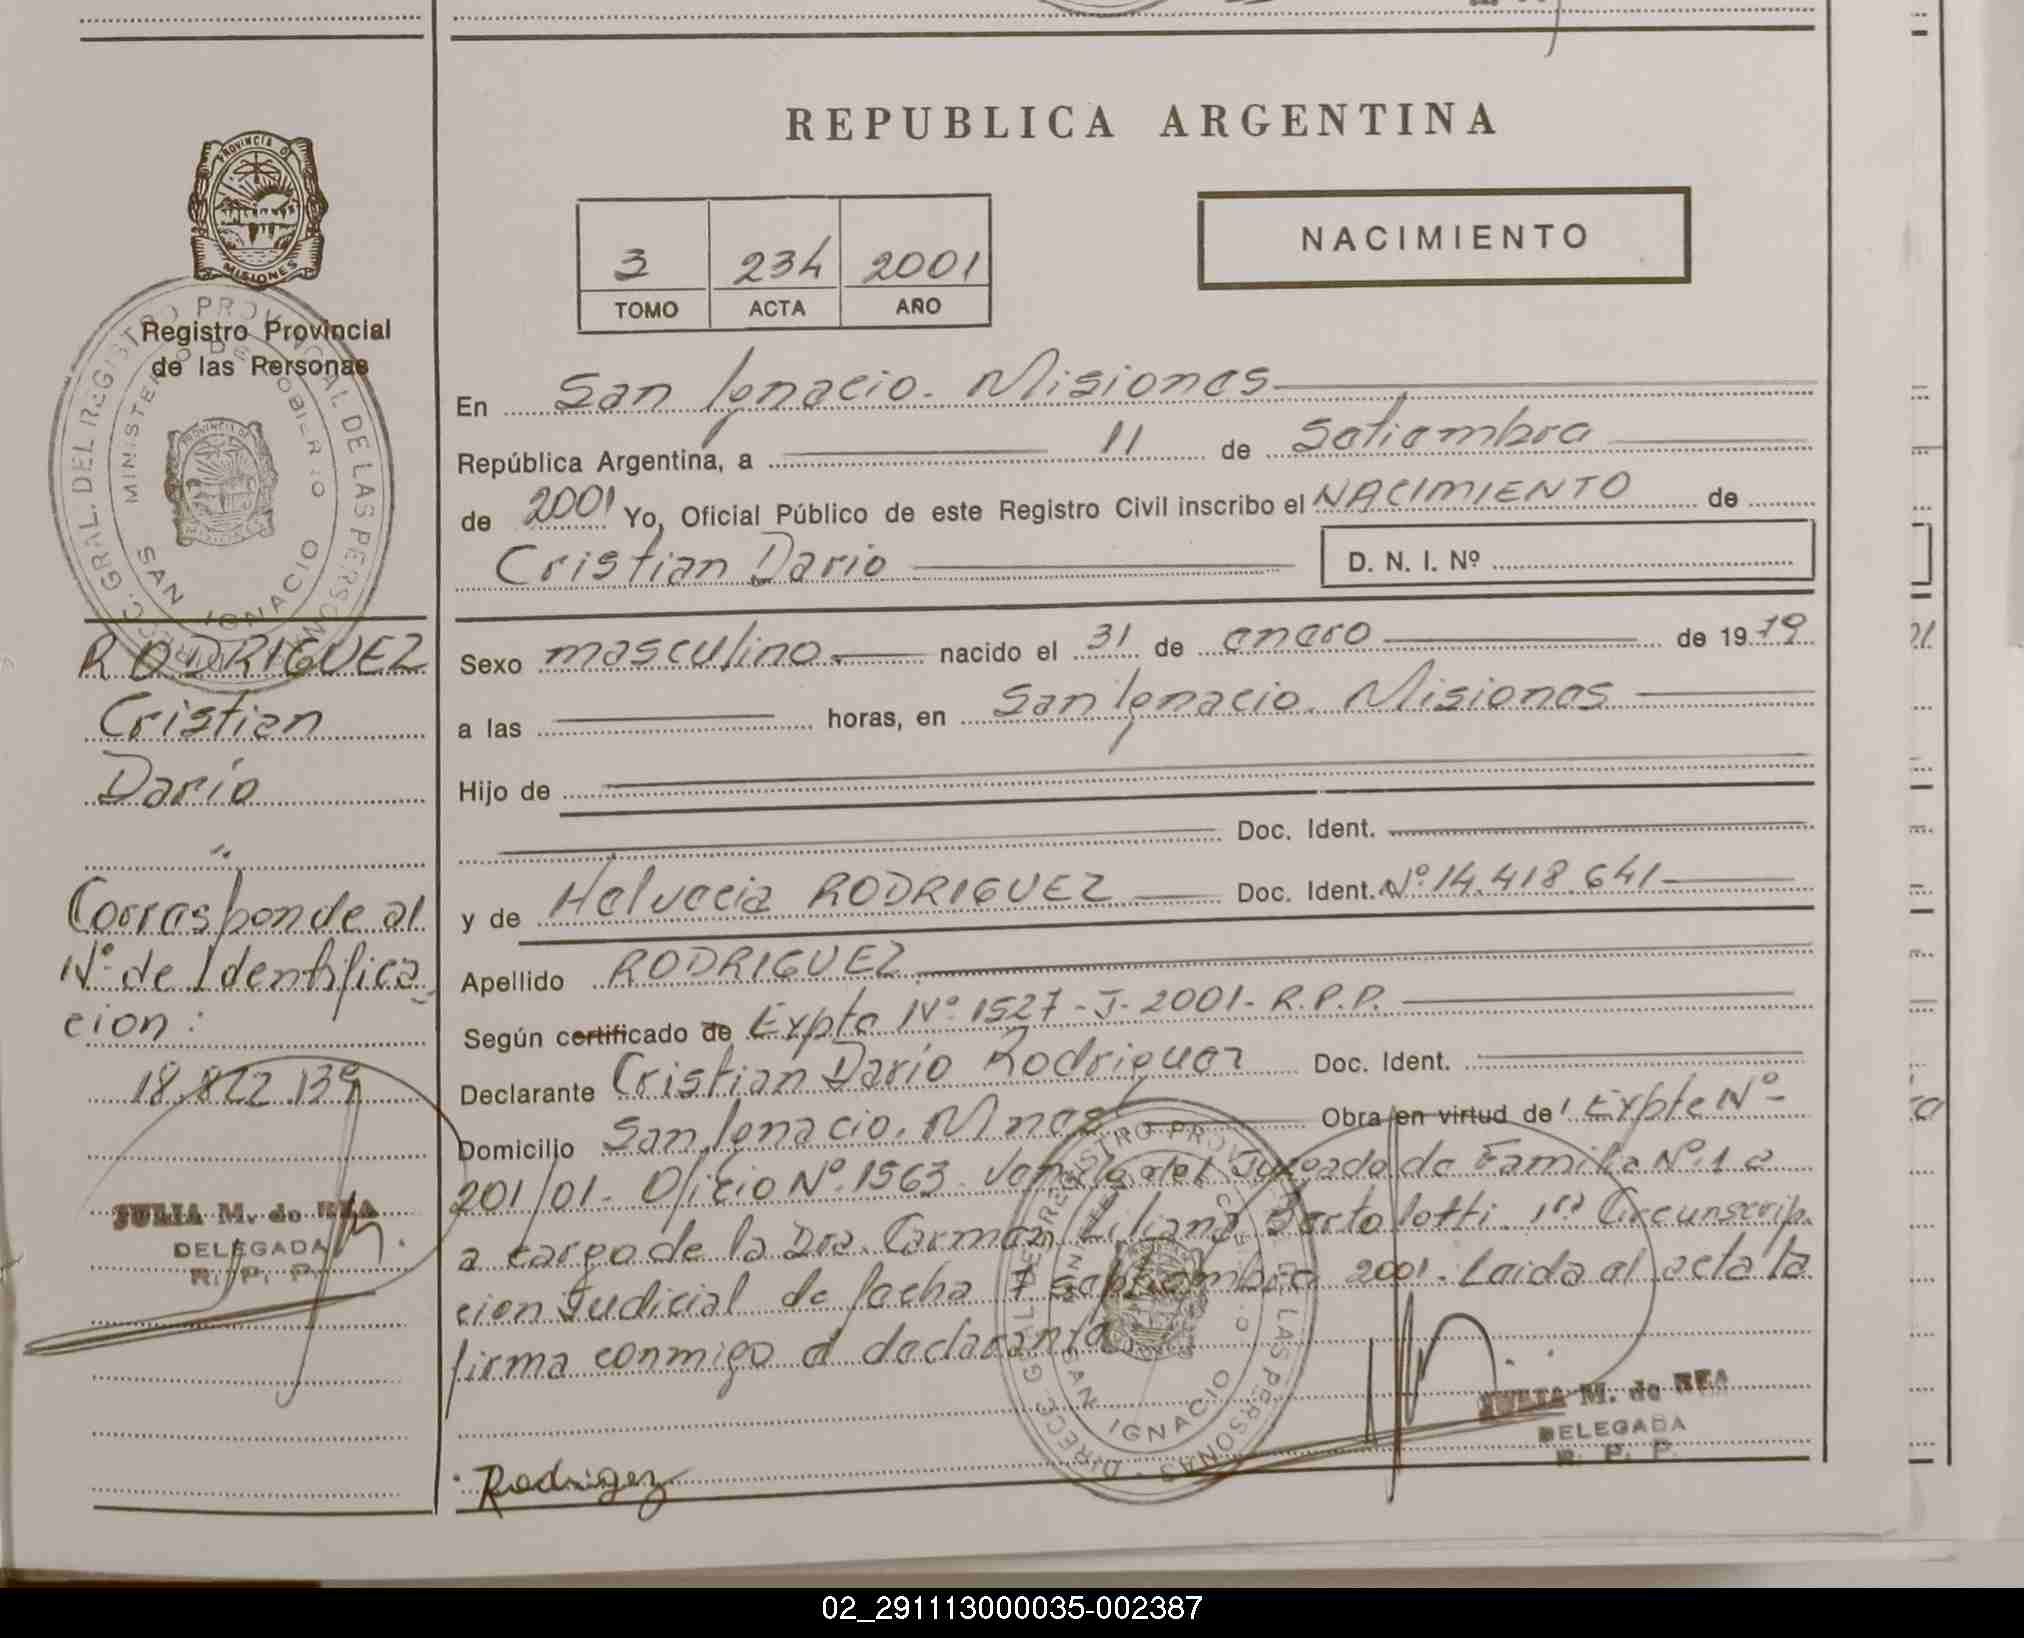 REPUBLICA ARGENTINA
NACIMIENTO
3 234 2001
TOMO ACTA AÑO
PROVINCIA DE
MISIONES
Registro Provincial
de las Personas
RODRIGUEZ
Cristian
Darío
Corresponde al
Nº de Identifica
cion:
18.822.139
JULIA M. de REA
DELEGADA
R. P. P.
En San Ignacio. Misiones
República Argentina, a 11 de Setiembre
de 2001 Yo, Oficial Público de este Registro Civil inscribo el NACIMIENTO de
Cristian Dario D. N. I. Nº
Sexo masculino nacido el 31 de enero de 1979
a las horas, en San Ignacio. Misiones
Hijo de
Doc. Ident.
y de Helvecia RODRIGUEZ Doc. Ident. Nº 14.418.641
Apellido RODRIGUEZ
Según certificado de Expte Nº 1527-J-2001-R.P.P.
Declarante Cristian Darío Rodriguez Doc. Ident.
Domicilio San Ignacio. Mnes Obra en virtud de Expte Nº
201/01. Oficio Nº 1563 del Juzgado de Familia Nº 1 a
a cargo de la Dra. Carmen Liliana Bortolotti 1ra Circunscrip.
cion Judicial de fecha 7 septiembre 2001. Leida el acta la
firma conmigo el declarante
DIRECC. GRAL. DEL REGISTRO PROVINCIAL DE LAS PERSONAS
MINISTERIO DE GOBIERNO
SAN IGNACIO
Rodrigez
JULIA M. de REA
DELEGADA
R. P. P.
02_291113000035-002387